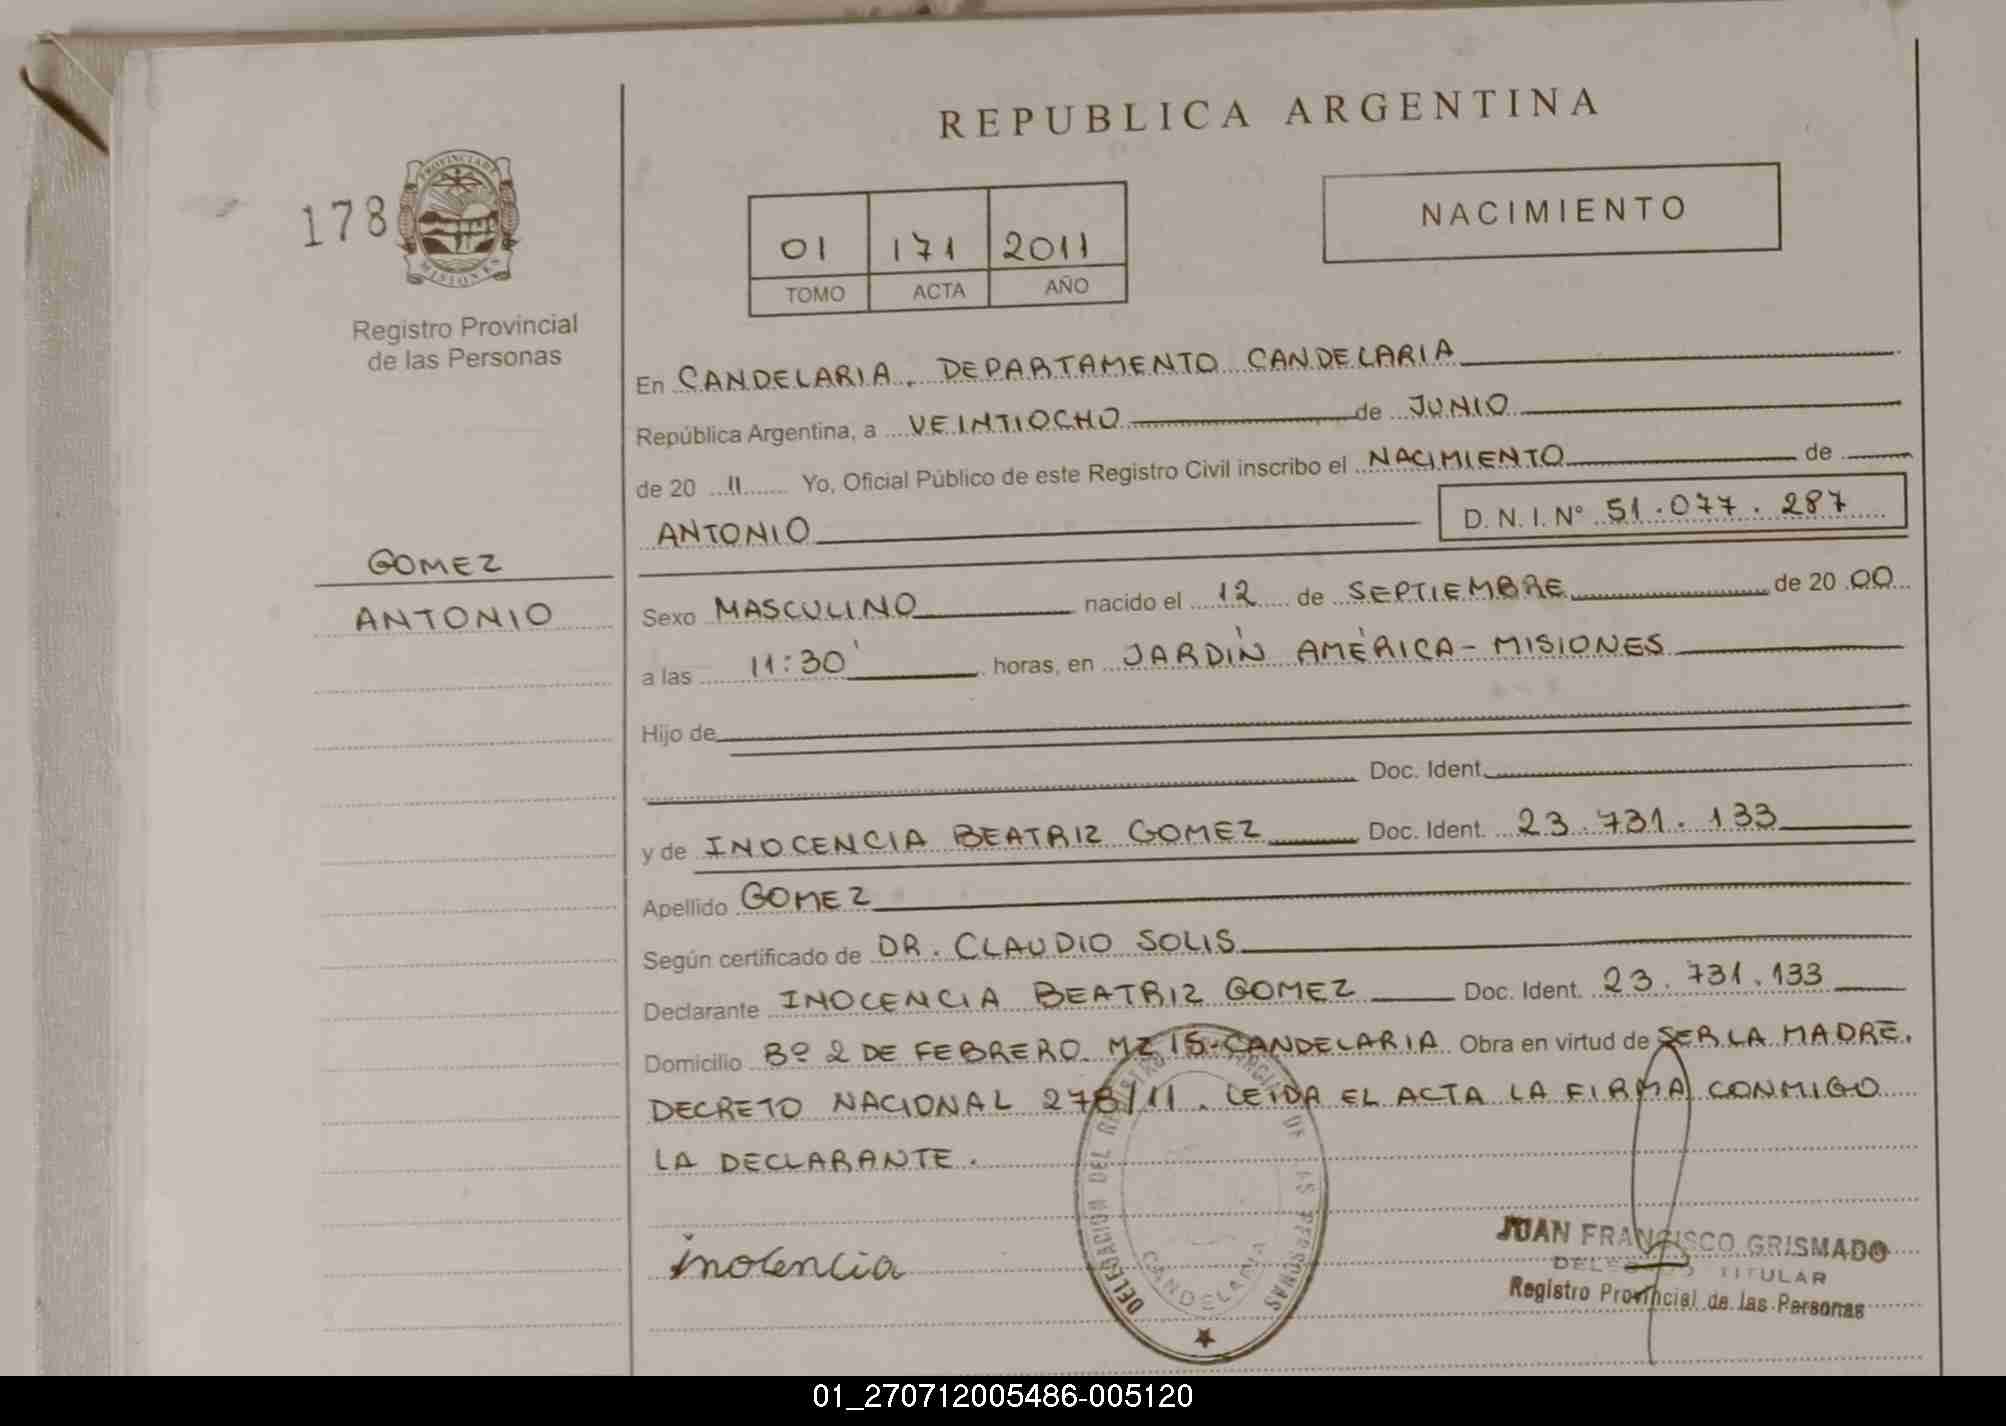 REPUBLICA ARGENTINA
178
PROVINCIA DE
MISIONES
Registro Provincial
de las Personas
01 171 2011
TOMO ACTA AÑO
NACIMIENTO
En CANDELARIA, DEPARTAMENTO CANDELARIA
República Argentina, a VEINTIOCHO de JUNIO
de 20 11 Yo, Oficial Público de este Registro Civil inscribo el NACIMIENTO de
ANTONIO D. N. I. Nº 51.077.287
GOMEZ
ANTONIO
Sexo MASCULINO nacido el 12 de SEPTIEMBRE de 20 00
a las 11:30' horas, en JARDÍN AMÉRICA - MISIONES
Hijo de
Doc. Ident.
y de INOCENCIA BEATRIZ GOMEZ Doc. Ident. 23.731.133
Apellido GOMEZ
Según certificado de DR. CLAUDIO SOLIS
Declarante INOCENCIA BEATRIZ GOMEZ Doc. Ident. 23.731.133
Domicilio Bº 2 DE FEBRERO MZ 15-CANDELARIA Obra en virtud de SER LA MADRE.
DECRETO NACIONAL 278/11. LEIDA EL ACTA LA FIRMA CONMIGO
LA DECLARANTE.
inocencia
DELEGACION DEL REGISTRO PROVINCIAL DE LAS PERSONAS
CANDELARIA
JUAN FRANCISCO GRISMADO
DELEGADO TITULAR
Registro Provincial de las Personas
01_270712005486-005120